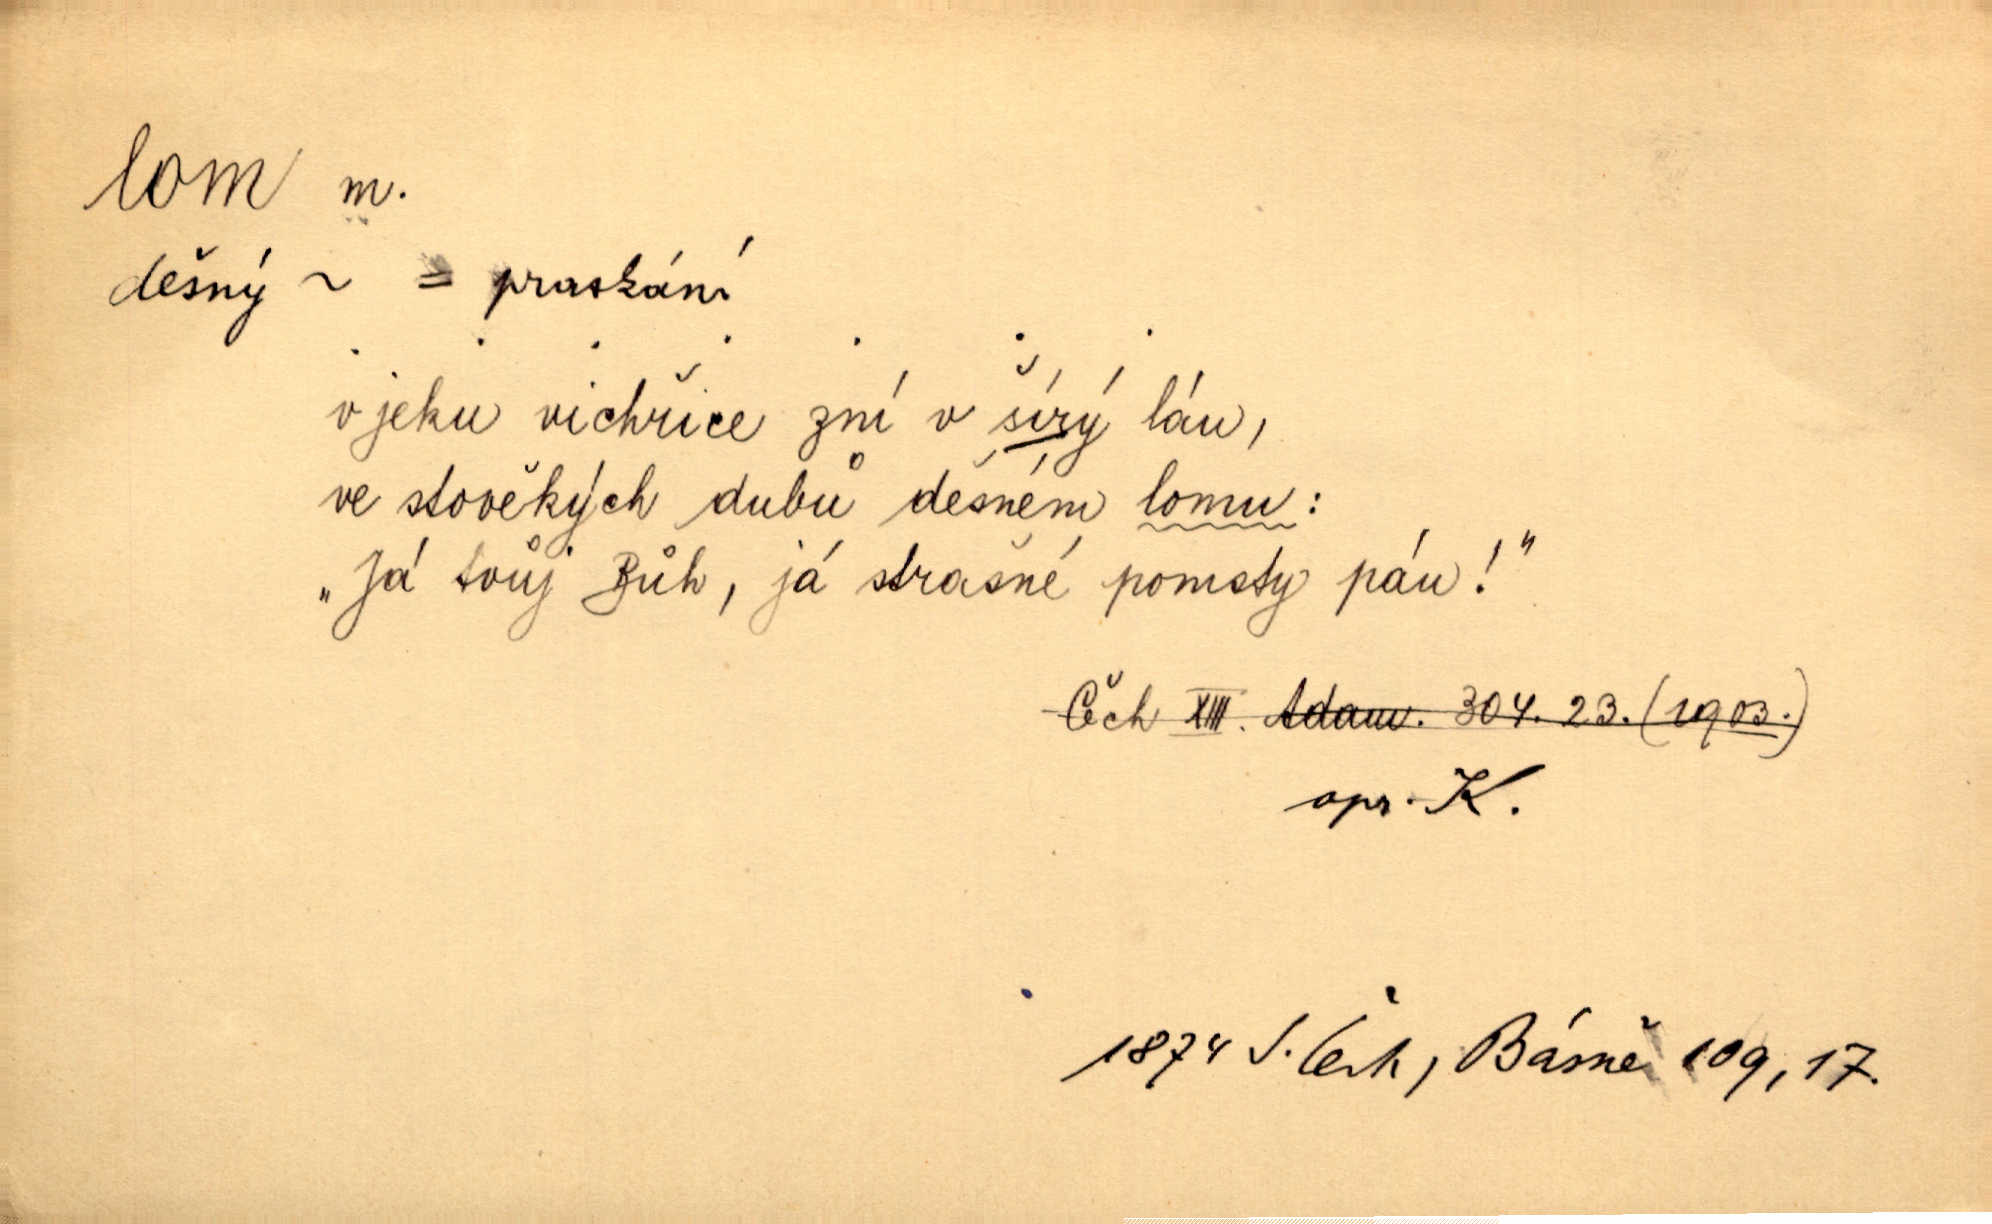 lom m.
děsný ~ = praskání
. . . . . . .
v jeku vichřice zní v širý lán,
ve stověkých dubů děsném lomu:
„Já tvůj Bůh, já strašné pomsty pán!"
Čech XIII. Adam. 304. 23. (1903.)
opr. K.
1874 S. Čech, Básně 109, 17.